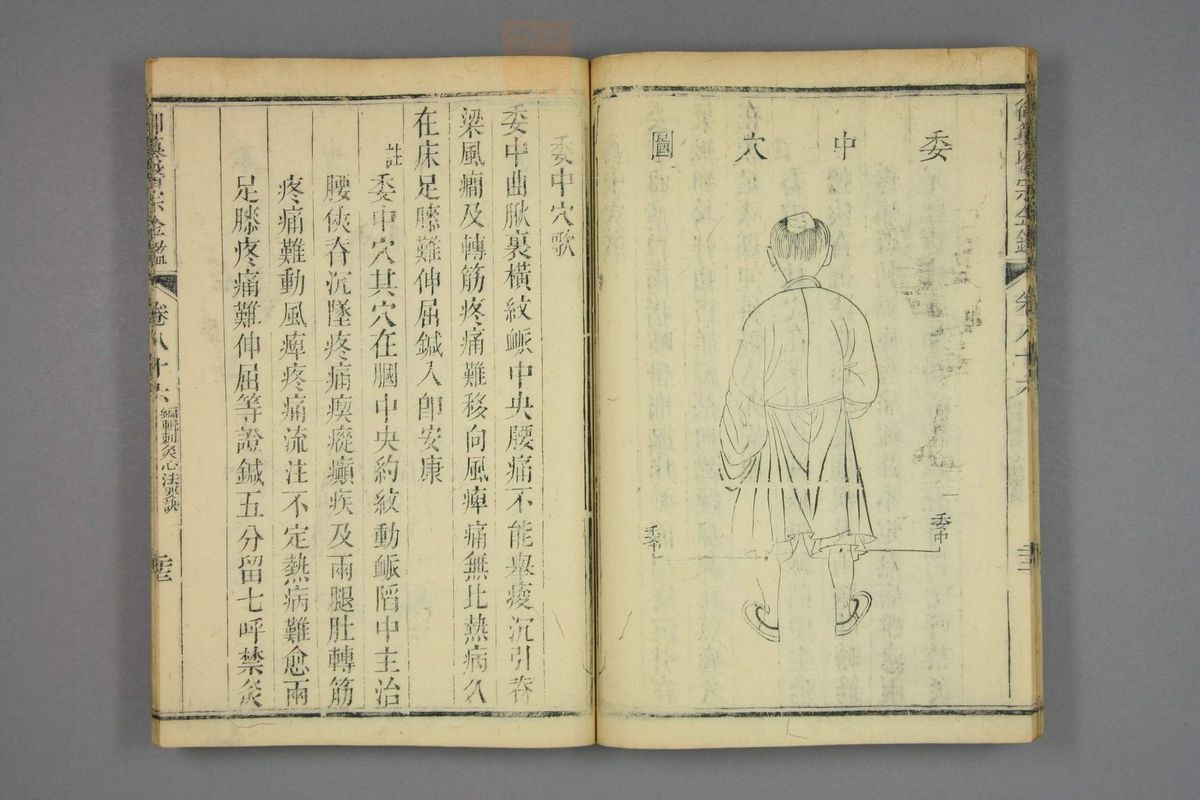 御纂醫宗金鑑 卷八十六
委中穴圖
委中
委中
委中穴歌
委中曲䐐裏橫紋脈中央腰痛不能舉痠沉引脊
梁風癎及轉筋疼痛難移向風痺痛無比熱病久
在床足膝難伸屈鍼入卽安康
註
委中穴其穴在膕中央約紋動脈䧟中主治
腰俠脊沉墜疼痛瘈瘲癲疾及兩腿肚轉筋
疼痛難動風痺疼痛流注不定熱病難愈兩
足膝疼痛難伸屈等證鍼五分留七呼禁灸
御纂醫宗金鑑 卷八十六 編輯刺灸心法要訣